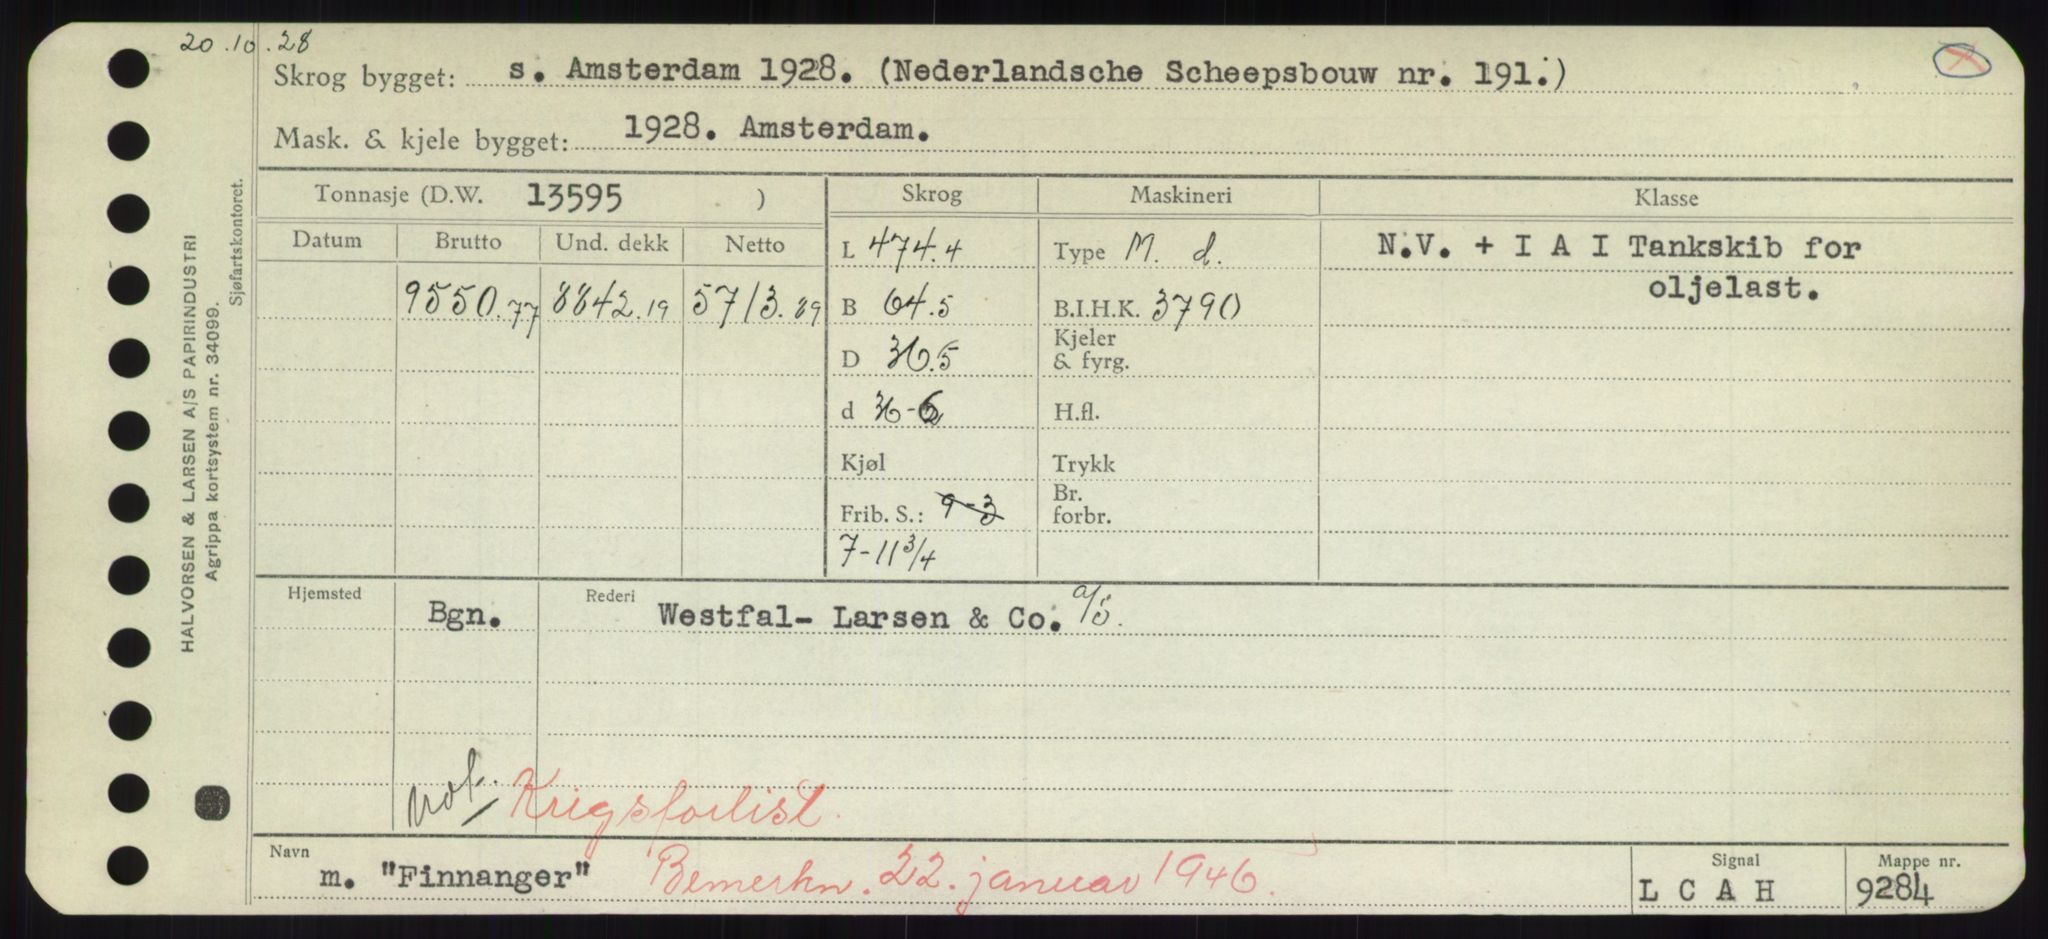 20.10.28
Skrog bygget: s. Amsterdam 1928. (Nederlandsche Scheepsbouw nr. 191.)
Mask. & kjele bygget: 1928. Amsterdam.
Tonnasje (D.W. 13595 ) Skrog Maskineri Klasse
Datum Brutto Und. dekk Netto L 474.4 Type M. d. N.V. + I A I Tankskib for
oljelast.
9550.77 8842.19 5713.89 B 64.5 B.I.H.K. 3790
D 36.5 Kjeler
& fyrg.
d H.fl.
Kjøl Trykk
Frib. S.: 9-3 Br.
forbr.
7-11 3/4
Hjemsted Bgn. Rederi Westfal- Larsen & Co. A/S.
not. Krigsforlist.
Navn m. "Finnanger" Bemerkn. 22. januar 1946. Signal L C A H Mappe nr. 9284
HALVORSEN & LARSEN A/S PAPIRINDUSTRI
Agrippa kortsystem nr. 34099.
Sjøfartskontoret.